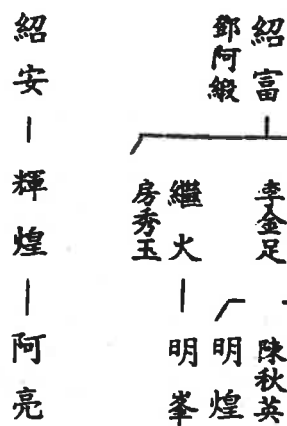 紹富
鄧阿緞
李金足
陳秋英
明煌
繼火
房秀玉
明峯
紹安
輝煌
阿亮